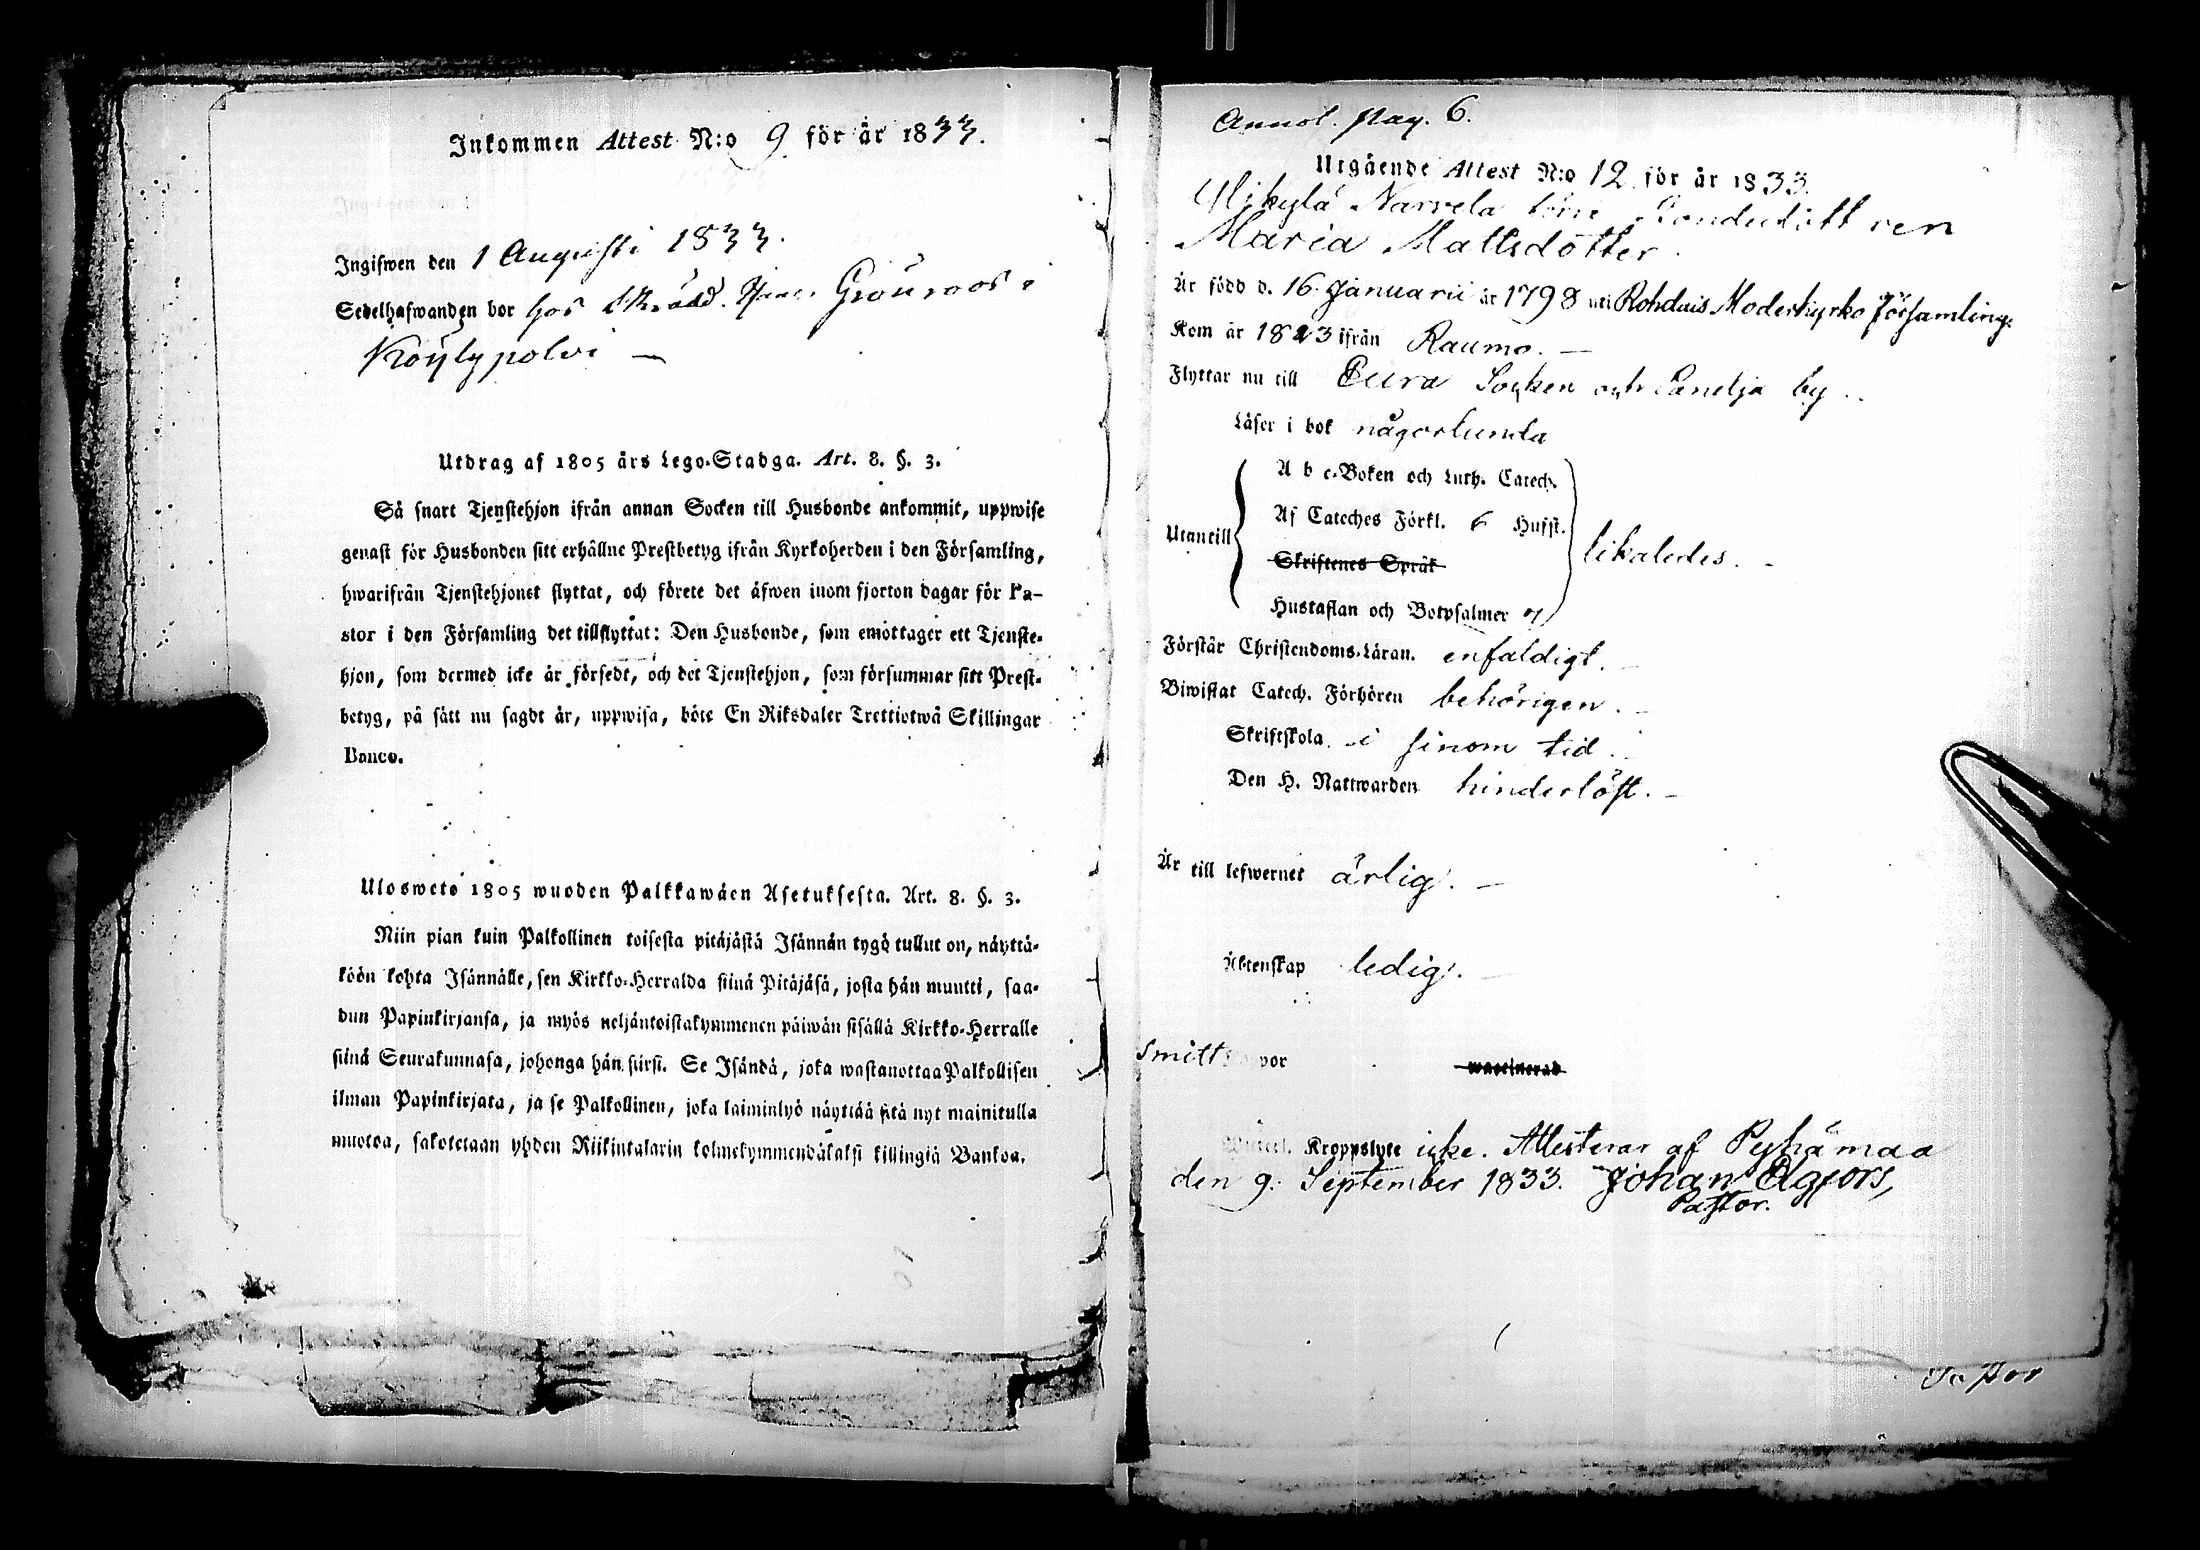 Inkommen Attest N:o 9 för år 1833.
Ingifwen den 1 Augusti 1833.
Sedelhafwanden bor hos Grönroos i
Köylypolvi —
Utdrag af 1805 års Lego-Stadga. Art. 8. §. 3.
Så snart Tjenstehjon ifrån annan Socken till Husbonde ankommit, uppwise
genast för Husbonden sitt erhållne Prestbetyg ifrån Kyrkoherden i den Församling,
hwarifrån Tjenstehjonet flyttat, och förete det äfwen inom fjorton dagar för Pa-
stor i den Församling det tillflyttat: Den Husbonde, som emottager ett Tjenste-
hjon, som dermed icke är försedt, och det Tjenstehjon, som försummar sitt Prest-
betyg, på sätt nu sagdt är, uppwisa, böte En Riksdaler Trettiotwå Skillingar
Banco.
Ulosweto 1805 wuoden Palkkawäen Asetuksesta. Art. 8. §. 3.
Niin pian kuin Palkollinen toisesta pitäjästä Isännän tygö tullut on, näyttä-
köön kohta Isännälle, sen Kirkko-Herralda siinä Pitäjäsä, josta hän muutti, saa-
dun Papinkirjansa, ja myös neljäntoistakymmenen päiwän sisällä Kirkko-Herralle
siinä Seurakunnasa, johonga hän siirsi. Se Isändä, joka wastanottaa Palkollisen
ilman Papinkirjata, ja se Palkollinen, joka laiminlyö näyttää sitä nyt mainitulla
muotoa, sakotetaan yhden Riikintalarin kolmekymmendäkaksi killingiä Bankoa.
Annot. pag. 6.
Utgående Attest N:o 12 för år 1833.
Narvela
Maria Mattsdotter
Är född d. 16 Januarii år 1798 uti Moderkyrko Församling.
Kom år 1823 ifrån Raumo. —
Flyttar nu till Eura Socken och Panelja by
Läser i bok någorlunda
A b c-Boken och Luth. Catech.
Af Cateches Förkl. 6 Hufst.
Utantill likaledes.
Skriftenes Språk
Hustaflan och Botpsalmer
Förstår Christendoms-Läran. enfaldigt.
Biwistat Catech. Förhören behörigen.
Skriftskola i sinom tid.
Den H. Nattwarden hinderlöst. —
Är till lefwernet ärlig. —
Äktenskap ledig. —
Smitt por waccinerad
Kroppslyte icke. Attesterar af Pyhämaa
den 9. September 1833. Johan Elgfors,
Pastor.